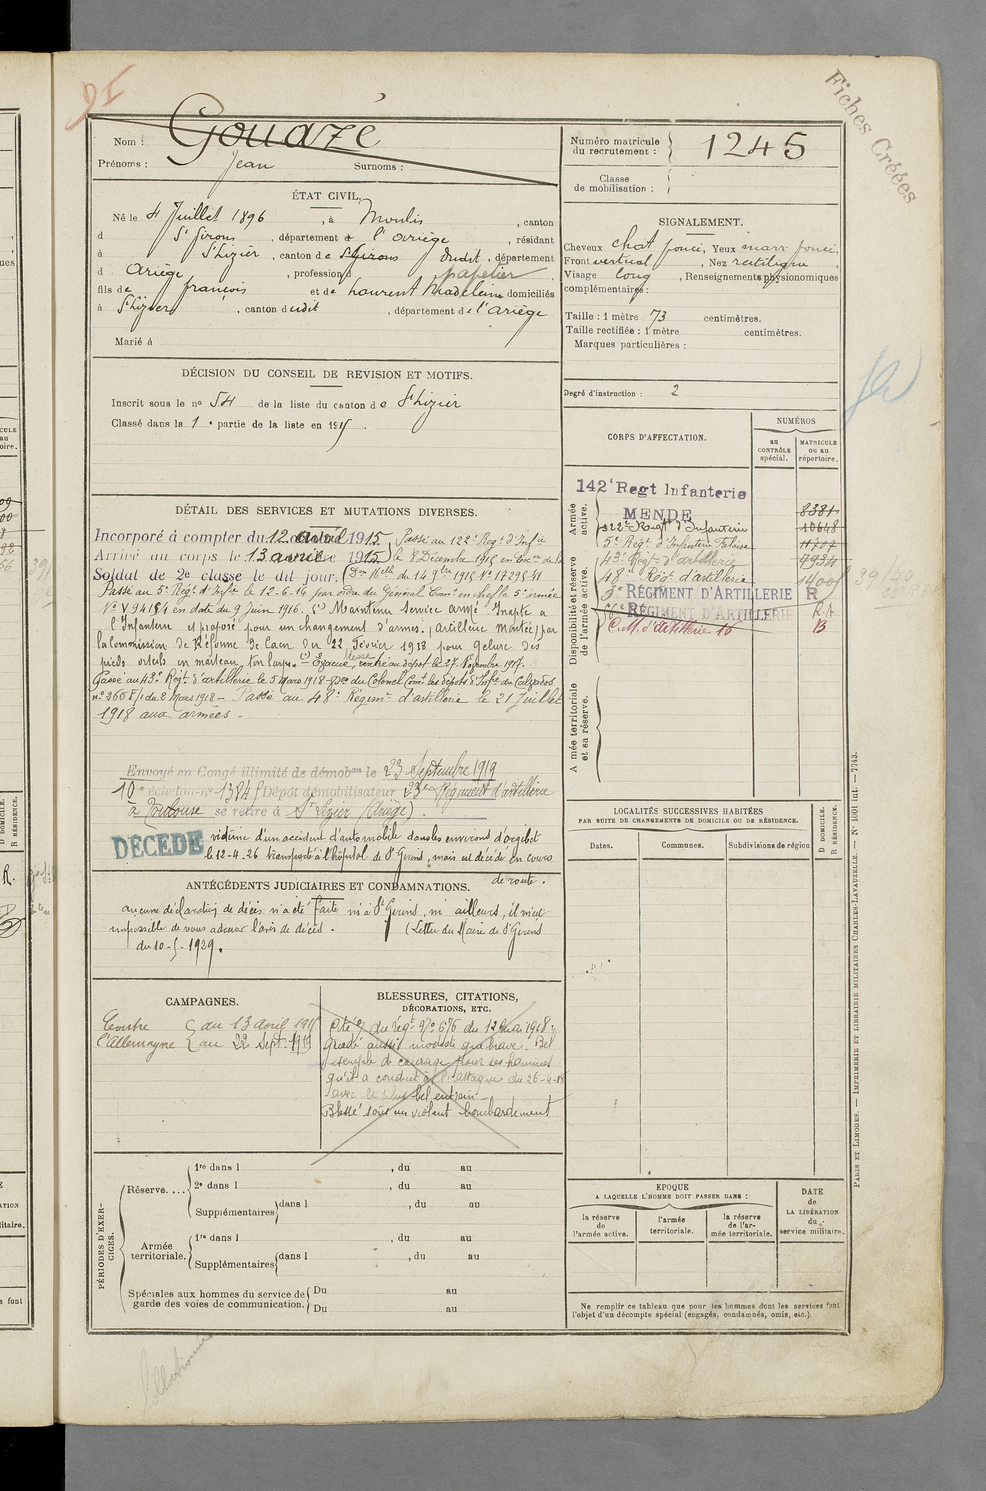 Fiches Créées
Nom : Gouazé
Prénoms : Jean Surnoms :
Numéro matricule du recrutement : 1245
Classe de mobilisation :
ÉTAT CIVIL.
Né le 4 Juillet 1896, à Moulis, canton
d St Girons, département de l'Ariège, résidant
à St Lizier, canton de St Girons dudit, département
d Ariège, profession d papetier
fils de François et de Laurent Madeleine domiciliés
à St Lizier, canton dudit, département de l'Ariège
Marié à
SIGNALEMENT.
Cheveux chat foncé, Yeux marr foncé.
Front vertical, Nez rectiligne,
Visage long, Renseignements physionomiques
complémentaires :
Taille : 1 mètre 73 centimètres.
Taille rectifiée : 1 mètre centimètres.
Marques particulières :
Degré d'instruction : 2
DÉCISION DU CONSEIL DE REVISION ET MOTIFS.
Inscrit sous le no 54 de la liste du canton de St Lizier
Classé dans la 1e partie de la liste en 1915.
DÉTAIL DES SERVICES ET MUTATIONS DIVERSES.
Incorporé à compter du 12 avril 1915. Passé au 122e Régt d'Infie
Arrivé au corps le 13 avril 1915 le 8 Décembre 1915 en
Soldat de 2e classe le dit jour. du 14 9bre 1915 No 17295
Passé au 5e Régt d'Infie le 12.6.16 par ordre du Général Comt en chef la 5e armée
No V 9484 en date du 9 Juin 1916. Maintenu Service armé Inapte à
l'Infanterie et proposé pour un changement d'armes, (artillerie montée) par
la Commission de Réforme de Caen du 22 Février 1918 pour gelure des
pieds orteils en marteau. Evacué, rentré au dépôt le 27 Novembre 1917.
Passé au 43e Régt d'artillerie le 5 Mars 1918 Don du Colonel Comt les dépôts d'Infie du Calvados
du 2 Mars 1918 – Passé au 48e Régimt d'artillerie le 21 Juillet
1918 aux armées –
Envoyé en Congé illimité de démobon le 23 Septembre 1919
10e échelon no 1384 Dépôt démobilisateur 23e Régiment d'artillerie
à Toulouse se retire à St Lizier (Ariège).
DÉCÉDÉ victime d'un accident d'automobile dans les environs d'orgibet
le 12-4-26 transporté à l'hôpital de St Girons, mais est décédé en cours
de route.
CORPS D'AFFECTATION.
NUMÉROS
au CONTRÔLE spécial.
MATRICULE ou au répertoire.
Armée active.
Disponibilité et réserve de l'armée active.
Armée territoriale et sa réserve.
142e Regt Infanterie
MENDE 8381
122e Régt d'Infanterie 10648
5e Régt d'Infanterie Falaise 11707
43e Régt d'artillerie 7934
48e Régt d'artillerie
RÉGIMENT D'ARTILLERIE R
RÉGIMENT D'ARTILLERIE R.A
C.M. d'Artillerie 16 B
LOCALITÉS SUCCESSIVES HABITÉES
PAR SUITE DE CHANGEMENTS DE DOMICILE OU DE RÉSIDENCE.
Dates. Communes. Subdivisions de région
D DOMICILE. R RÉSIDENCE.
ANTÉCÉDENTS JUDICIAIRES ET CONDAMNATIONS.
aucune déclaration de décès n'a été faite ni à St Girons, ni ailleurs, il m'est
impossible de vous adresser l'avis de décès. (Lettre du Maire de St Girons
du 10-5-1929.
CAMPAGNES.
Contre du 13 avril 1915
l'Allemagne au 22 Sept. 1919
BLESSURES, CITATIONS,
DÉCORATIONS, ETC.
Cité O/ du régt No 676 du 12 Mai 1918 :
Gradé aussi modeste que brave. Bel
exemple de courage pour ses hommes
qu'il a conduit à l'attaque du 26-4-18
avec le plus bel entrain –
Blessé sous un violent bombardement
PÉRIODES D'EXERCICES.
Réserve....
1re dans l , du au
2e dans l , du au
Supplémentaires dans l , du au
Armée territoriale.
1re dans l , du au
Supplémentaires dans l , du au
Spéciales aux hommes du service de garde des voies de communication.
Du au
Du au
EPOQUE
A LAQUELLE L'HOMME DOIT PASSER DANS :
la réserve de l'armée active.
l'armée territoriale.
la réserve de l'armée territoriale.
DATE de LA LIBÉRATION du service militaire.
Ne remplir ce tableau que pour les hommes dont les services font
l'objet d'un décompte spécial (engagés, condamnés, omis, etc.).
PARIS ET LIMOGES. — IMPRIMERIE ET LIBRAIRIE MILITAIRES CHARLES-LAVAUZELLE. — No 1001 int. — 7743.
Collationné